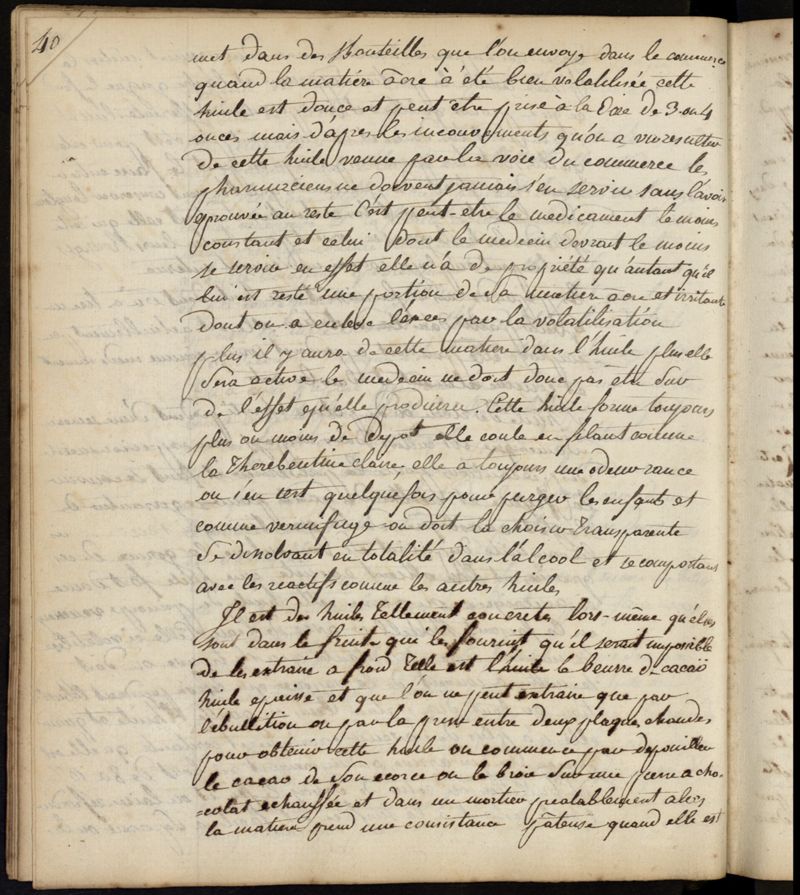 40
met dans des Bouteilles que l'on envoye dans le commerce
quand la matiére âcre à été bien volatilisée cette
huile est douce et peut être prise à la Dose de 3 ou 4
onces mais d'après les inconvenients qu'on a vu resulter
de cette huile venue par la voie du commerce les
pharmaciens ne doivent jamais s'en servir sans l'avoir
eprouvée au reste C'est peut-etre le medicament le moins
constant et celui dont le medecin devrait le moins
se servir en effet elle n'à de propriété qu'autant qu'il
lui est resté une portion de sa matiere acre et irritante
dont on a enlevé l'exces par la volatilisation
plus il y aura de cette matiere dans l'huile plus elle
sera active le medecin ne doit donc pas etre sur
de l'effet qu'elle produira. Cette huile forme toujours
plus ou moins de Depot elle coule en filant comme
la Therebentine claire, elle a toujours une odeur rance
on s'en sert quelquefois pour purger les enfants et
comme vermifuge on doit la choisir transparente
se dissolvant en totalité dans l'alcool et se comportant
avec les reactifs comme les autres huiles
Il est des huiles tellement concretes lors-même qu'elles
sont dans le fruit qui les fournit qu'il serait impossible
de les extraire a froid telle est l'huile le beurre de cacaö
huile epaisse et que l'on ne peut extraire que par
l'ébullition ou par la presse entre deux plaques chaudes
pour obtenir cette huile on commence par depouiller
le cacao de son ecorce on le broie sur une pierre a cho-
=colat echauffée et dans un mortier prealablement
la matiere prend une consistance pâteuse quand elle est